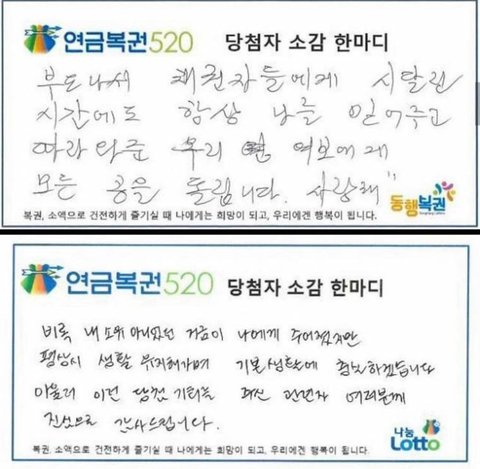 연금복권520 당첨자 소감 한마디
부도나서 채권자들에게 시달린
시간에도 항상 나를 믿어주고
따라와준 우리 여보에게
모든 공을 돌립니다. 사랑해"
동행복권
복권, 소액으로 건전하게 즐기실 때 나에게는 희망이 되고, 우리에겐 행복이 됩니다.
연금복권520 당첨자 소감 한마디
비록 내 소유 아니었던 거금이 나에게 주어졌지만
평상시 생활 유지해가며 기본생활에 충실하겠습니다
아울러 이런 당첨 기회를 주신 관련자 여러분께
진심으로 감사드립니다.
나눔 Lotto
복권, 소액으로 건전하게 즐기실 때 나에게는 희망이 되고, 우리에겐 행복이 됩니다.